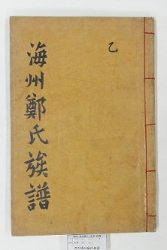 乙
海州鄭氏族譜